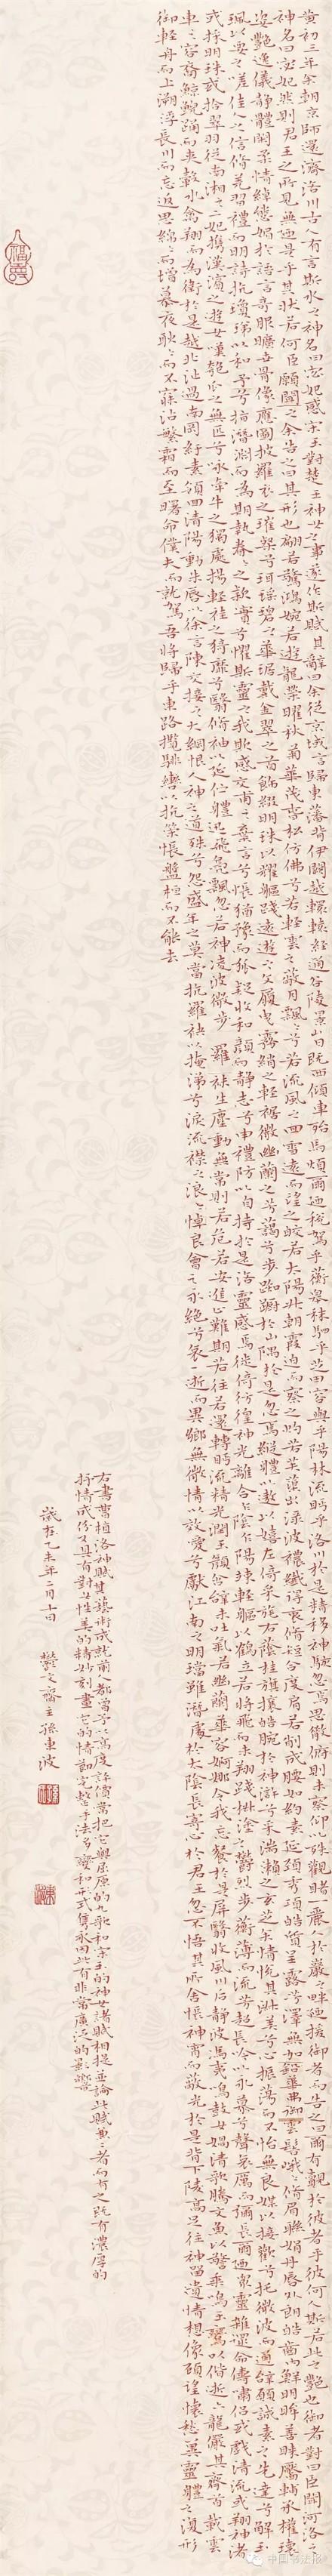 黃初三年余朝京師還濟洛川古人有言斯水之神名曰宓妃感宋玉對楚王神女之事遂作斯賦其辭曰余從京域言歸東藩背伊闕越轘轅經通谷陵景山日既西傾車殆馬煩爾迺稅駕乎蘅皋秣駟乎芝田容與乎陽林流眄乎洛川於是精移神駭忽焉思散俯則未察仰以殊觀睹一麗人於巖之畔迺援御者而告之曰爾有覿於彼者乎彼何人斯若此之艷也御者對曰臣聞河洛之
神名曰宓妃然則君王之所見無迺是乎其狀若何臣願聞之余告之曰其形也翩若驚鴻婉若遊龍榮曜秋菊華茂春松仿佛兮若輕雲之蔽月飄飄兮若流風之回雪遠而望之皎若太陽升朝霞迫而察之灼若芙蕖出淥波穠纖得衷脩短合度肩若削成腰如約素延頸秀項皓質呈露芳澤無加鉛華弗御雲髻峨峨脩眉聯娟丹唇外朗皓齒內鮮明眸善睞靨輔承權瓌
姿艷逸儀靜體閑柔情綽態媚於語言奇服曠世骨像應圖披羅衣之璀粲兮珥瑤碧之華琚戴金翠之首飾綴明珠以耀軀踐遠遊之文履曳霧綃之輕裾微幽蘭之芳藹兮步踟躕於山隅於是忽焉縱體以遨以嬉左倚采旄右蔭桂旗攘皓腕於神滸兮采湍瀨之玄芝余情悅其淑美兮心振蕩而不怡無良媒以接歡兮托微波而通辭願誠素之先達兮解玉
珮以要之嗟佳人之信脩羌習禮而明詩抗瓊珶以和予兮指潛淵而為期執眷眷之款實兮懼斯靈之我欺感交甫之棄言兮悵猶豫而狐疑收和顏而靜志兮申禮防以自持於是洛靈感焉徙倚彷徨神光離合乍陰乍陽竦輕軀以鶴立若將飛而未翔踐椒塗之鬱烈步蘅薄而流芳超長吟以永慕兮聲哀厲而彌長爾迺眾靈雜遝命儔嘯侶或戲清流或翔神渚
或採明珠或拾翠羽從南湘之二妃攜漢濱之遊女歎匏瓜之無匹兮詠牽牛之獨處揚輕袿之猗靡兮翳脩袖以延佇體迅飛鳧飄忽若神淩波微步羅襪生塵動無常則若危若安進止難期若往若還轉眄流精光潤玉顏含辭未吐氣若幽蘭華容婀娜令我忘餐於是屏翳收風川后靜波馮夷鳴鼓女媧清歌騰文魚以警乘鳴玉鸞以偕逝六龍儼其齊首載雲
車之容裔鯨鯢踊而夾轂水禽翔而為衛於是越北沚過南岡紆素領回清陽動朱唇以徐言陳交接之大綱恨人神之道殊兮怨盛年之莫當抗羅袂以掩涕兮淚流襟之浪浪悼良會之永絕兮哀一逝而異鄉無微情以效愛兮獻江南之明璫雖潛處於太陰長寄心於君王忽不悟其所舍悵神宵而蔽光於是背下陵高足往神留遺情想像顧望懷愁冀靈體之復形
御輕舟而上溯浮長川而忘返思綿綿而增慕夜耿耿而不寐沾繁霜而至曙命僕夫而就駕吾將歸乎東路攬騑轡以抗策悵盤桓而不能去
右書曹植洛神賦其藝術成就前人都曾予以高度評價常把它與屈原的九歌和宋玉的神女諸賦相提並論此賦兼二者而有之既有濃厚的
抒情成份又具有對女性美的精妙刻畫它的情節完整手法多變和形式雋永因此有非常廣泛的影響
歲在乙未年二月十日 鬱文齋主孫東波
中国书法报